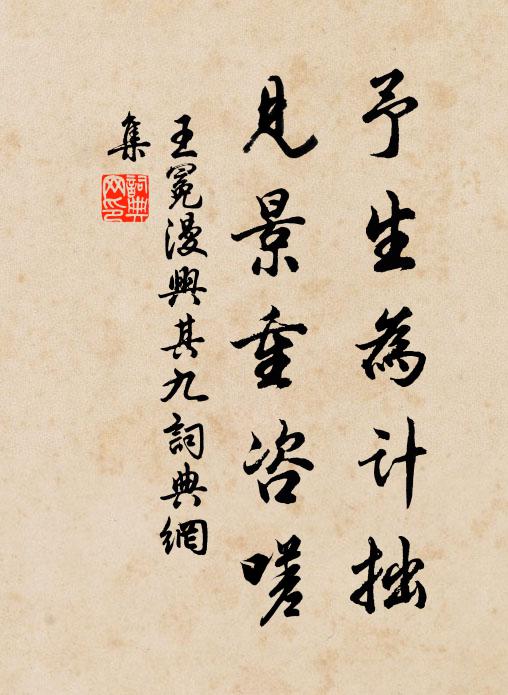 予生為計拙
見景重咨嗟
王冕漫興其九詞典網
集
詞典
網印